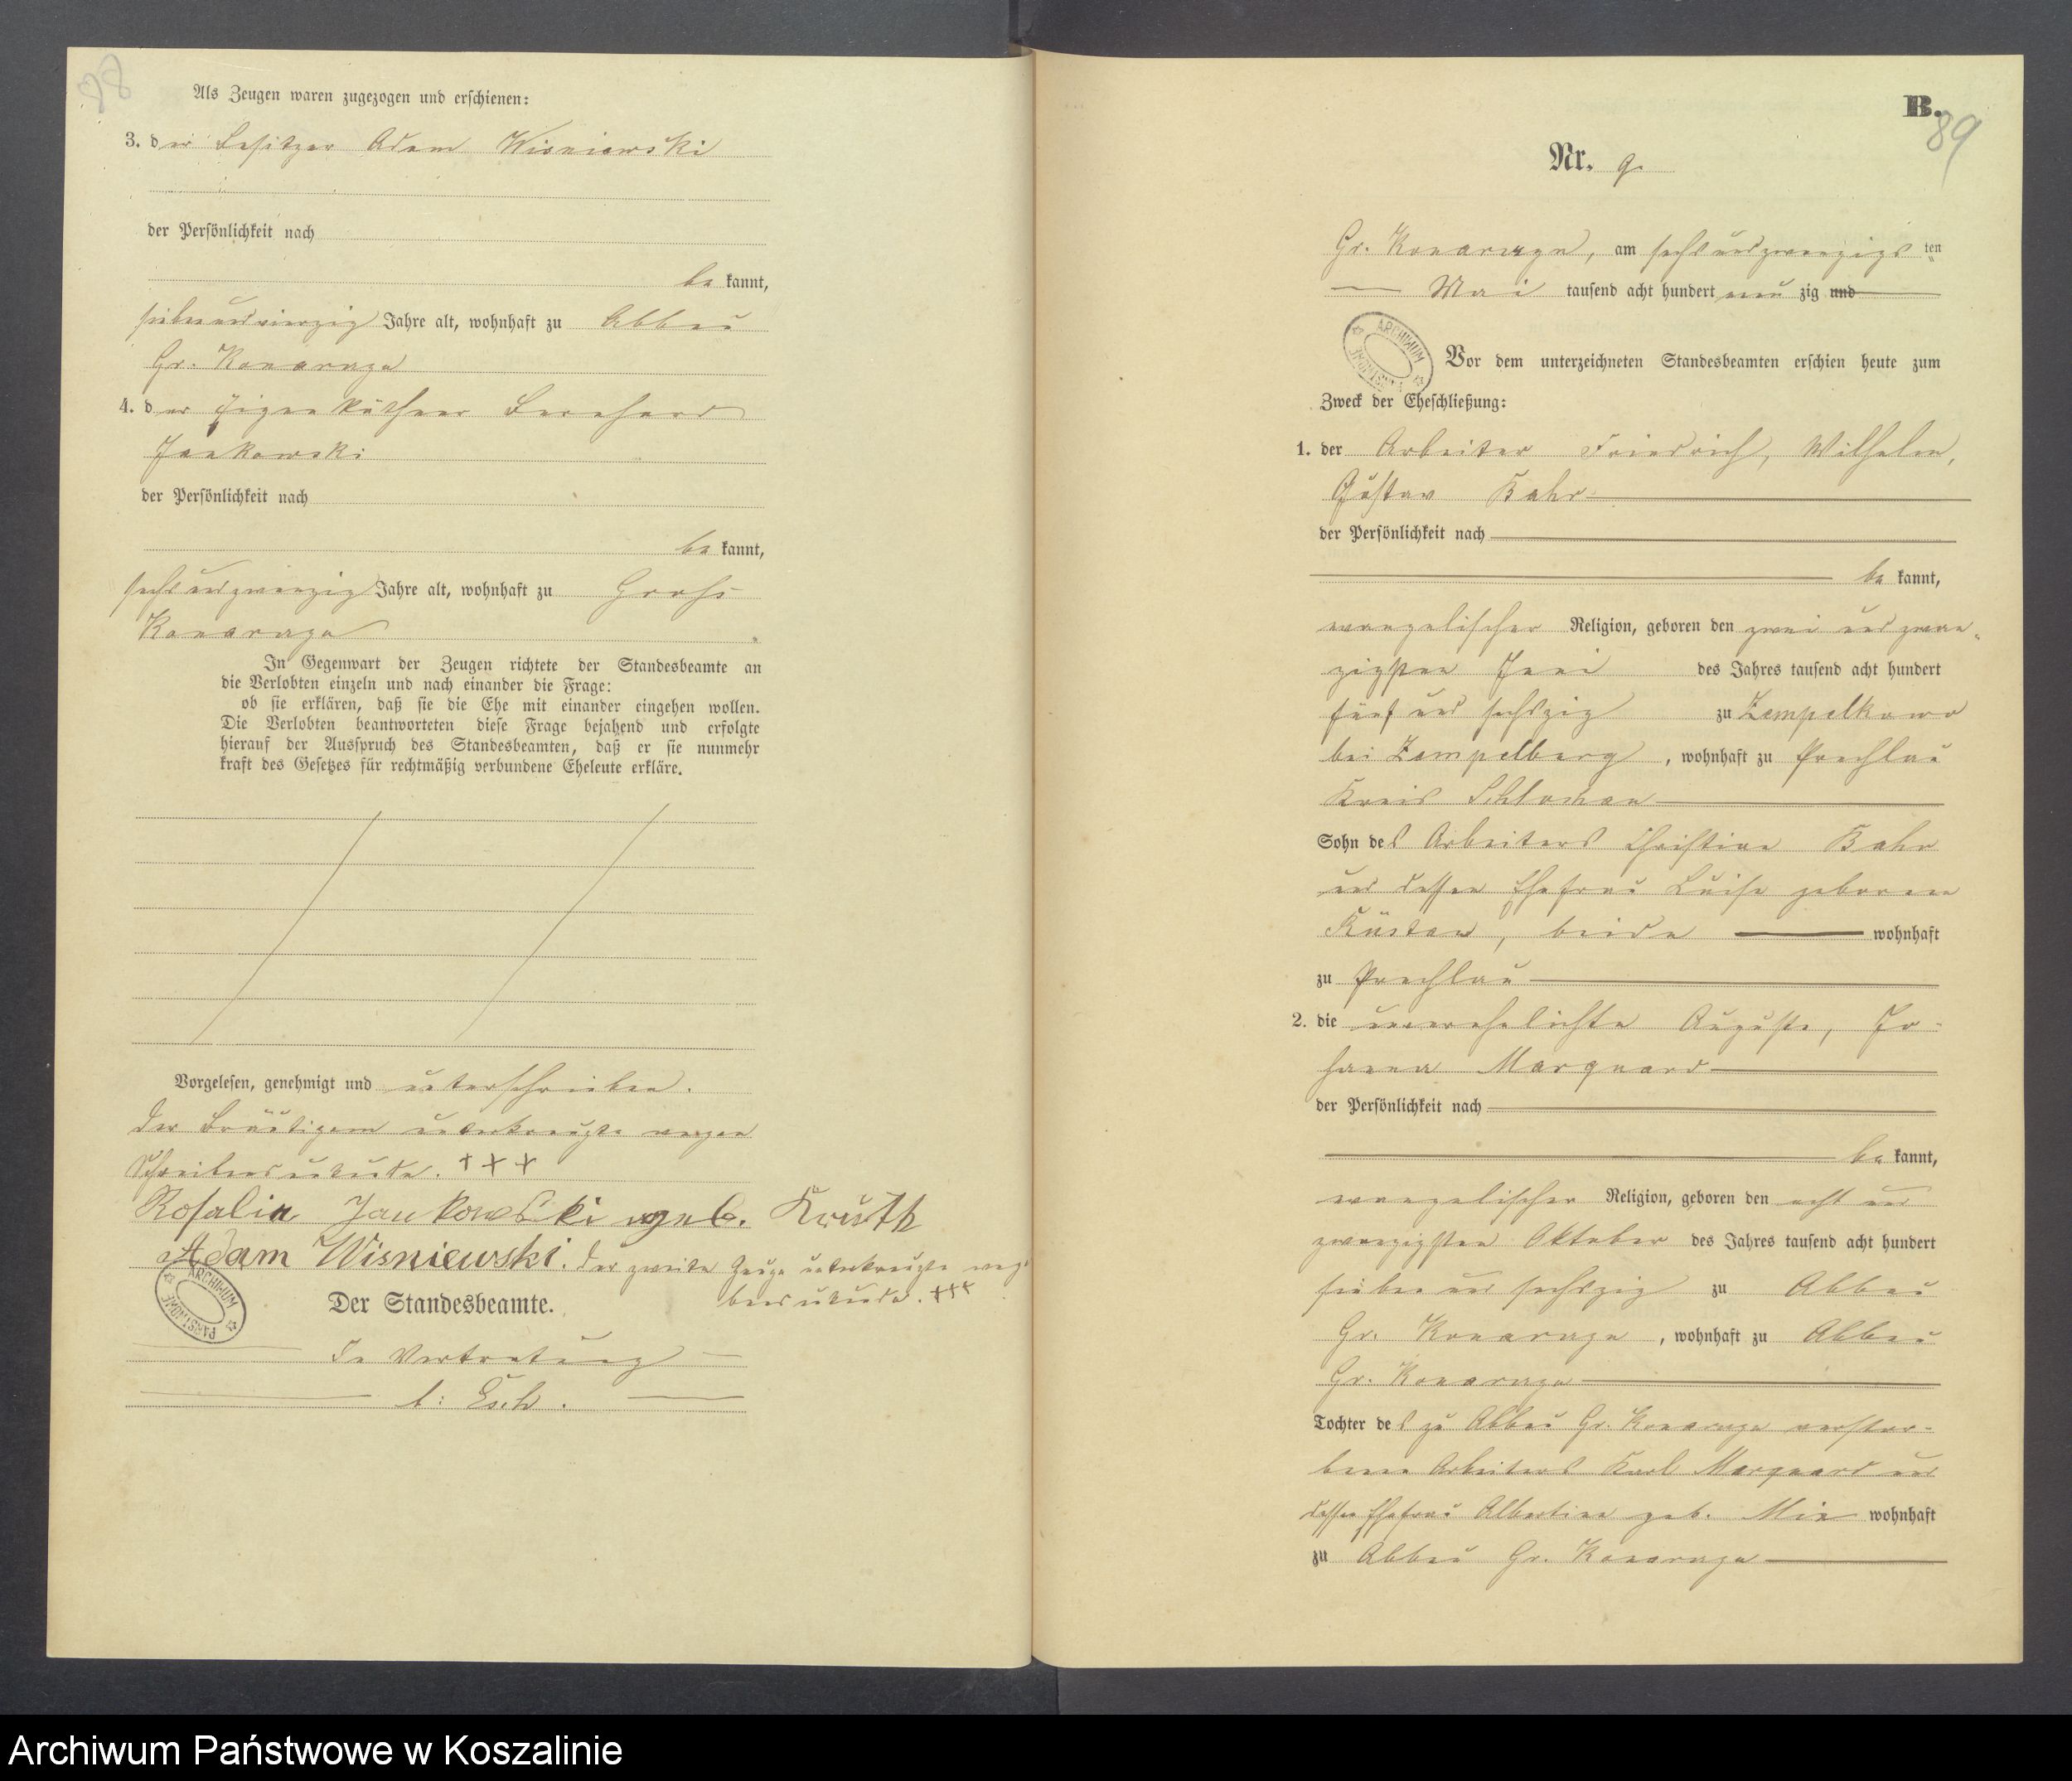 Als Zeugen waren zugezogen und erschienen:
3. der Besitzer Adam Wisniewski
der Persönlichkeit nach
be kannt,
siebenundvierzig Jahre alt, wohnhaft zu Abbau
Gr. Konarczyn
4. der Eigenkäthner Bernhard
Jankowski
der Persönlichkeit nach
be kannt,
sechsundzwanzig Jahre alt, wohnhaft zu Groß
Konarczyn
In Gegenwart der Zeugen richtete der Standesbeamte an
die Verlobten einzeln und nach einander die Frage:
ob sie erklären, daß sie die Ehe mit einander eingehen wollen.
Die Verlobten beantworteten diese Frage bejahend und erfolgte
hierauf der Ausspruch des Standesbeamten, daß er sie nunmehr
kraft des Gesetzes für rechtmäßig verbundene Eheleute erkläre.
Vorgelesen, genehmigt und unterschrieben.
Der Bräutigam unterkreuzte wegen
Schreibensunkunde. +++
Rosalia Jankowski geb. Kruth
Adam Wisniewski. Der zweite Zeuge unterkreuzte weg.
bensunkunde. +++
Der Standesbeamte.
In Vertretung
B.
89
Nr. 9.
Gr. Konarczyn, am sechsundzwanzigs ten
Mai tausend acht hundert neun zig und
Vor dem unterzeichneten Standesbeamten erschien heute zum
Zweck der Eheschließung:
1. der Arbeiter Friedrich, Wilhelm,
Gustav Bahr
der Persönlichkeit nach
be kannt,
evangelischer Religion, geboren den zwei und zwan-
zigsten Juni des Jahres tausend acht hundert
fünf und sechszig zu Zempelkowo
bei Zempelberg, wohnhaft zu Prechlau
Kreis Schlochau
Sohn des Arbeiters Christian Bahr
und dessen Ehefrau Luise geborene
beide wohnhaft
zu Prechlau
2. die unverehelichte Auguste, Jo-
hanna Marquard
der Persönlichkeit nach
be kannt,
evangelischer Religion, geboren den acht und
zwanzigsten Oktober des Jahres tausend acht hundert
sieben und sechszig zu Abbau
Gr. Konarczyn, wohnhaft zu Abbau
Gr. Konarczyn
Tochter des zu Abbau Gr. Konarczyn verstor-
benen Arbeiters Karl Marquard und
dessen Ehefrau Albertine geb. wohnhaft
zu Abbau Gr. Konarczyn
Archiwum Państwowe w Koszalinie